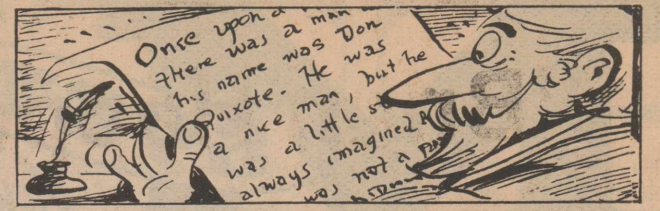 Once upon a
there was a man
his name was Don
uixote. He was
a nice man, but he
was a little
always imagined
was not a